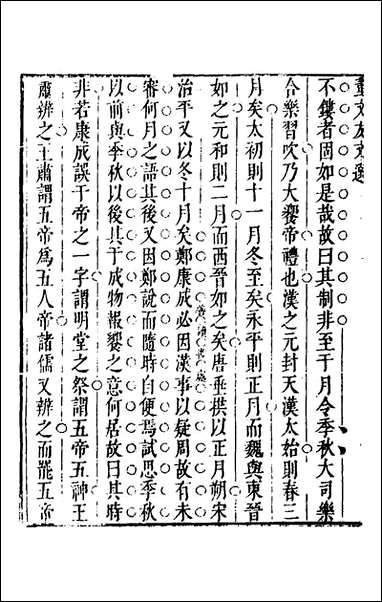 董文友文選
不鏤者固如是哉故曰其制非至于月令季秋大司樂
合樂習吹乃大饗帝禮也漢之元封天漢太始則春三
月矣太初則十一月冬至矣永平則正月而魏與東晉
如之元和則二月而西晉如之矣唐垂拱以正月朔宋
治平又以冬十月矣鄭康成必因漢事以疑周故有未
審何月之語其後又因鄭說而隨時自便焉試思季秋
以前與季秋以後其于成物報饗之意何居故曰其時
非若康成誤于帝之一字謂明堂之祭謂五帝五神王
肅辨之王肅謂五帝爲五人帝諸儒又辨之而罷五帝